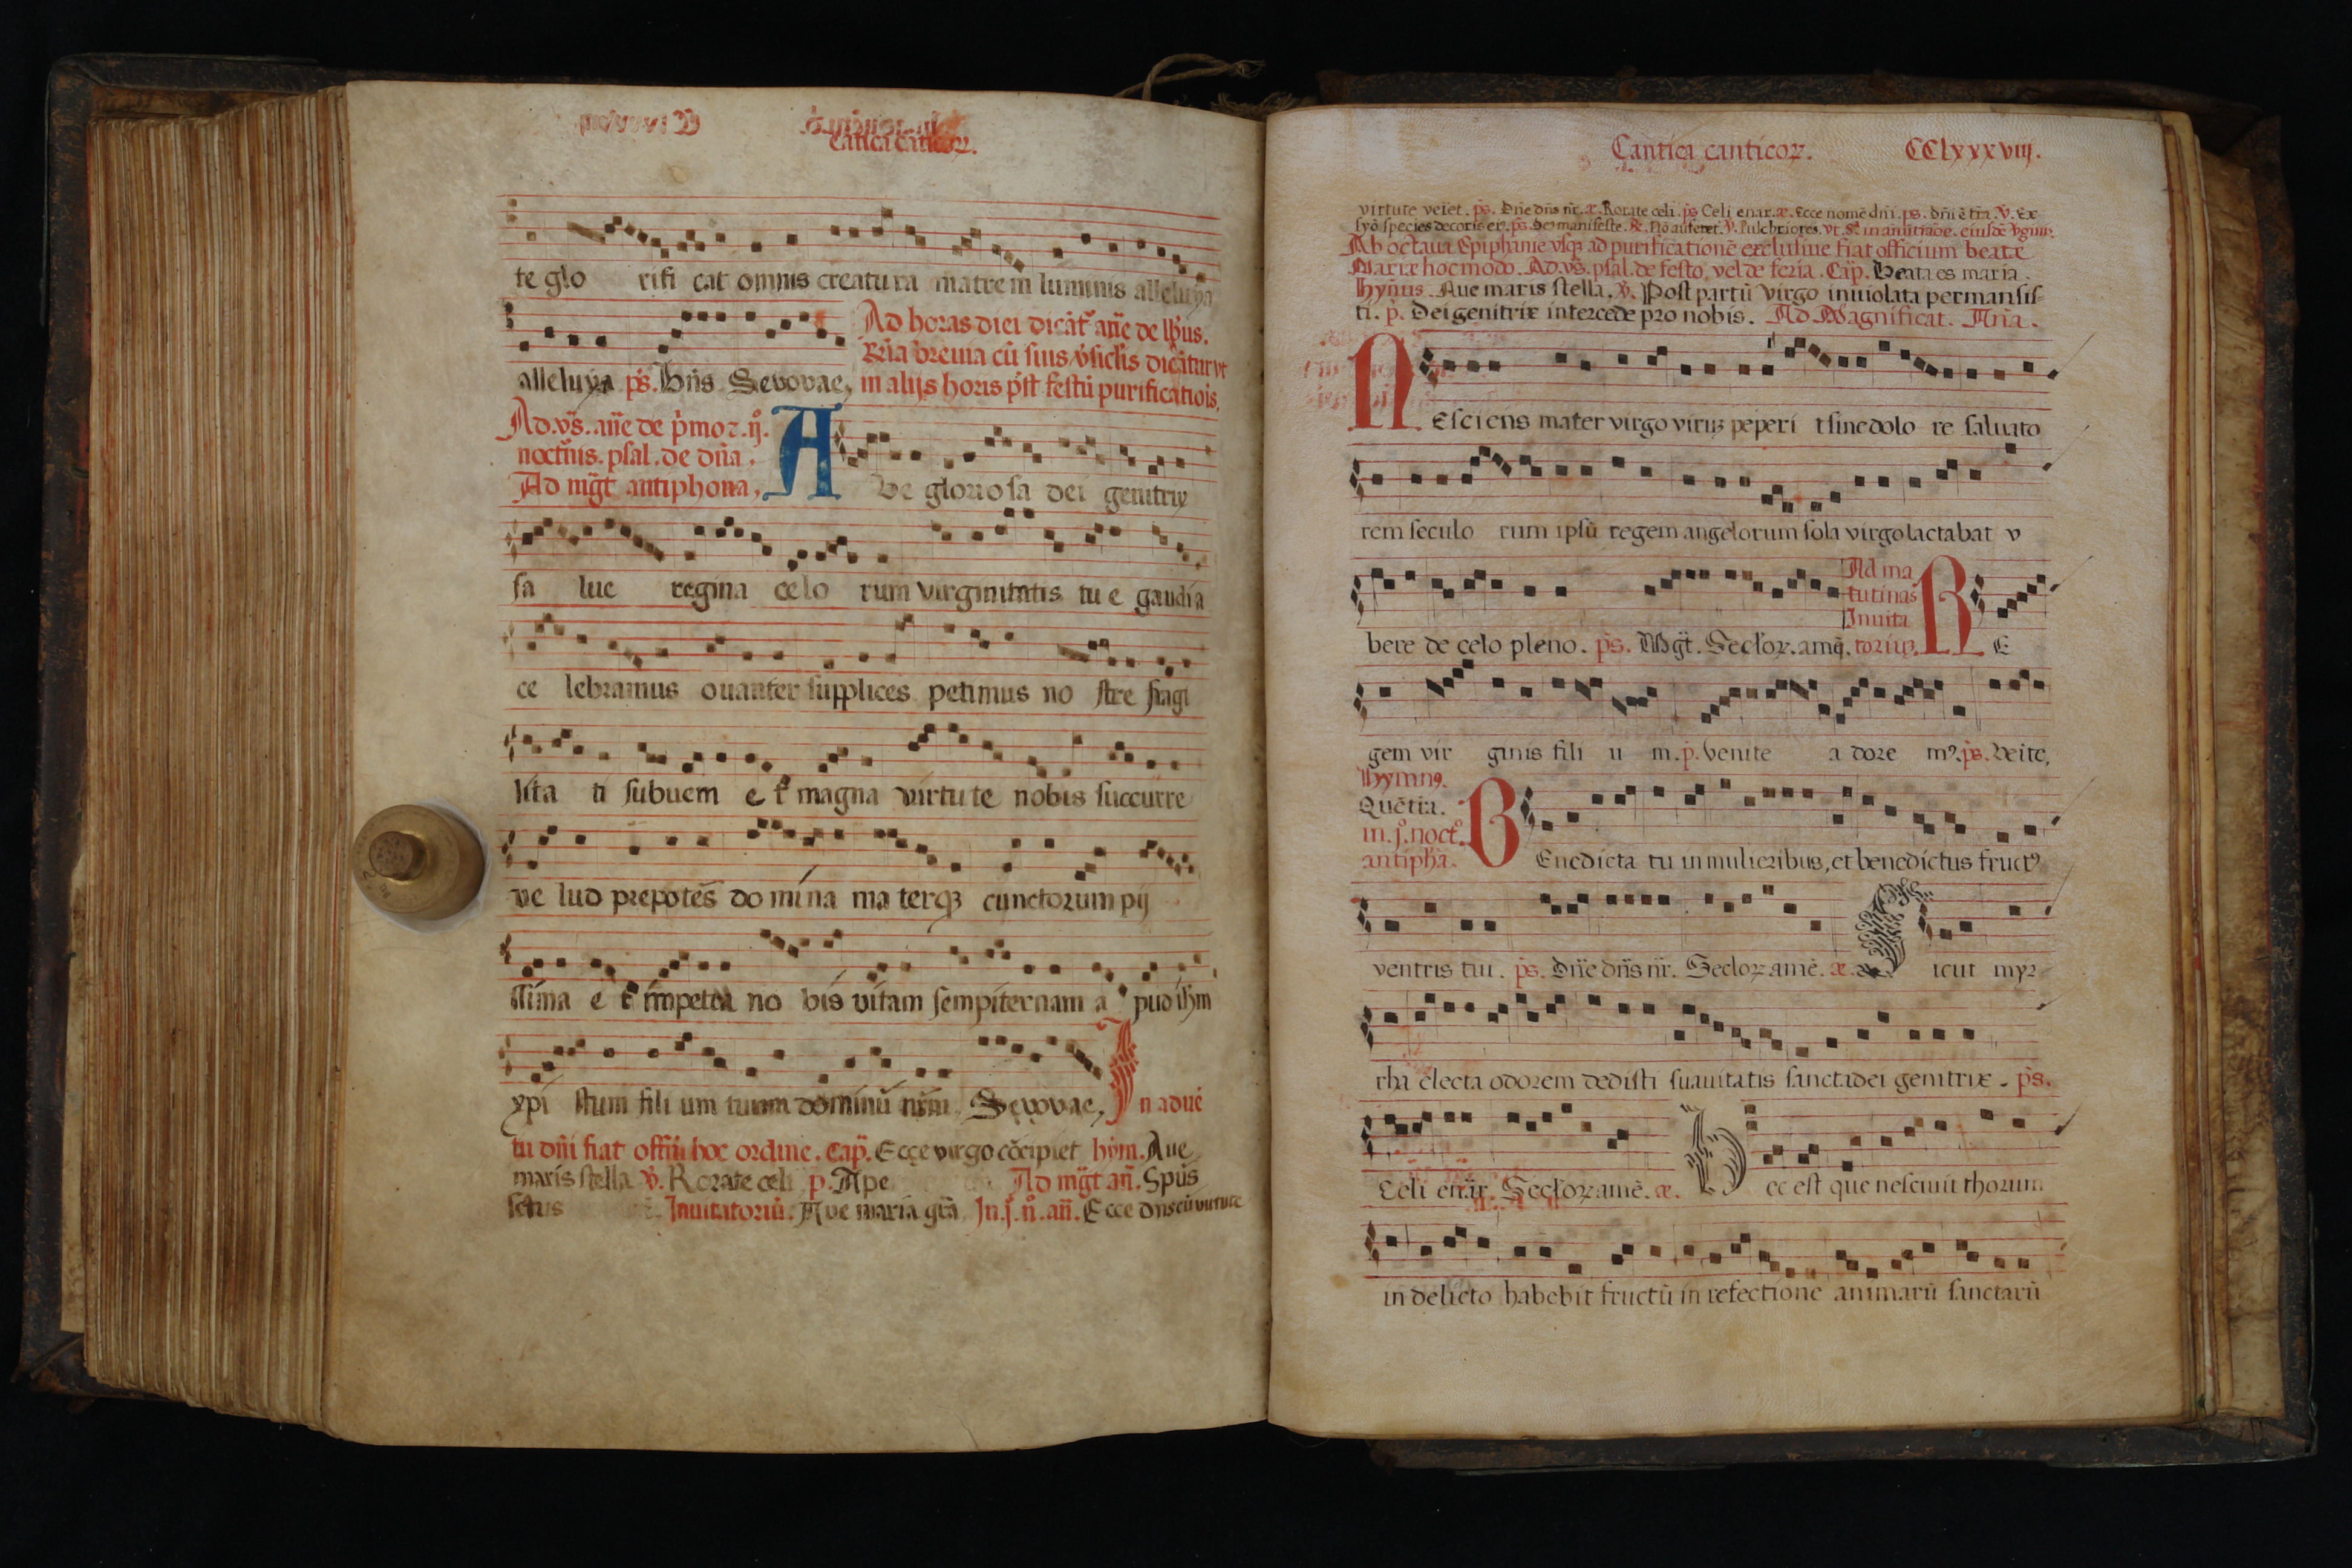 Cãtica cãticoꝝ.
te glo rifi cat omnis creatura matrem luminis alleluya
Ad horas diei dicãt añe de
cũ suis dicãtur vt
alleluya ps. Bñs Seuouae, in alijs horis pˢt festũ purificatiõis,
Ad. vs̃. añe de pˀmo
noctˀnis. psal. de dña.
Ad mg̃t antiphona,
A Ve gloriosa dei genitrix
sa lue regina celo rum virginitatis tu e gaudia
ce lebramus ouanter supplices petimus no stre fragi
lita ti subuem e t magna virtute nobis succurre
ve lud prepotẽs do mina ma terqꝫ cunctorum pij
ssima e t impetra no bis vitam sempiternam a pud ihm
xpi stum fili um tuum dominũ nr̃m Seuouae, In aduẽ
tu dñi fiat offm̃ hoc ordine. Cap̃. Ecce virgo cõcipiet hym. Aue
maris stella ℣. Rorate celi p. Ape Ad mg̃t añ. Spũs
sctus Inuitatoriũ. Aue maria gr̃a In. j. n̊. añ. Ecce virtute
Cantica canticoꝝ. CClxxxviij.
virtute veiet. ps. Dñe dñs nr̃. æ. Rorate celi. ps Celi enar. æ. Ecce nomẽ dñi. ps. dñi ẽ tr̃a. ℣. Ex
syõ species decoris eiˀ. ps. Ds manifeste.
Ab octaua Epiphanie vsqꝫ ad purificationẽ exclusiue fiat officium beate
Mariæ hoc modo. Ad. vs̃. psal. de festo, vel de feria. Cap̃. Beata es maria.
Hym̃us. Aue maris stella. ℣. Post partũ virgo inuiolata permansis=
ti. p. Dei genitrix intercede pro nobis. Ad Magnificat. Añа.
NEsciens mater virgo virũ peperi t sine dolo re saluato
rem seculo rum ipsũ regem angelorum sola virgo lactabat v
Ad ma
tutinas
Inuita
bere de celo pleno. ps. Mg̃t. Secloꝝ. amẽ. toriũ. R E
gem vir ginis fili u m. p. venite a dore mꝰ. ps. Veite,
Hymnꝰ.
Quẽ tr̃a.
in. j̊. noctˀ.
antiphã. BEnedicta tu in mulieribus, et benedictus fructꝰ
ventris tui. ps. Dñe dñs nr̃. Secloꝝ amẽ. æ. Sicut myr
rha electa odorem dedisti suauitatis sancta dei genitrix. ps.
Celi enar̃r. Secloꝝ amẽ. æ. Hec est que nesciuit thorum
in delicto habebit fructũ in refectione animarũ sanctarũ